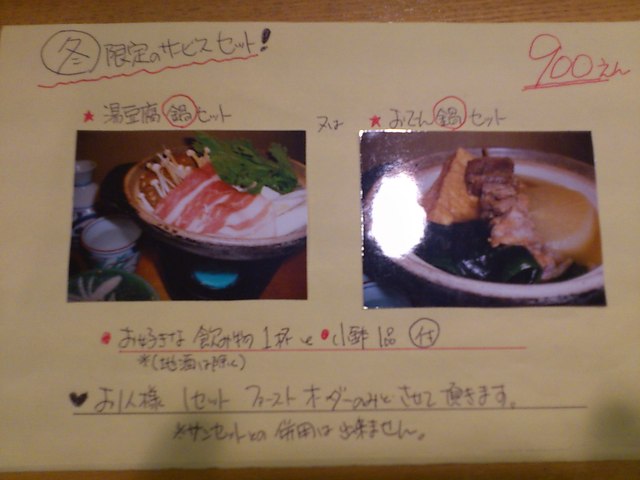 冬 限定のサービスセット!
900えん
★湯豆腐鍋セット 又は ★おでん鍋セット
●お好きな飲み物1杯と●小鉢1品付
*(地酒は除く)
♥お1人様1セットファーストオーダーのみとさせて頂きます。
※サンセットとの併用は出来ません。